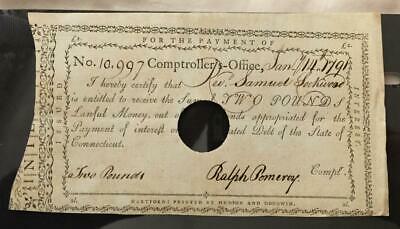 FOR THE PAYMENT OF
£2. £2.
No. 10,997 Comptroller's-Office, Jan. 14. 1791
I hereby certify that Rev. Samuel Lockwood
is entitled to receive the Sum of TWO POUNDS
Lawful Money, out of the Funds appropriated for the
Payment of interest on Liquidated Debt of the State of
Connecticut.
Two Pounds Ralph Pomeroy, Compt.
HARTFORD: PRINTED BY HUDSON AND GOODWIN.
INTEREST.